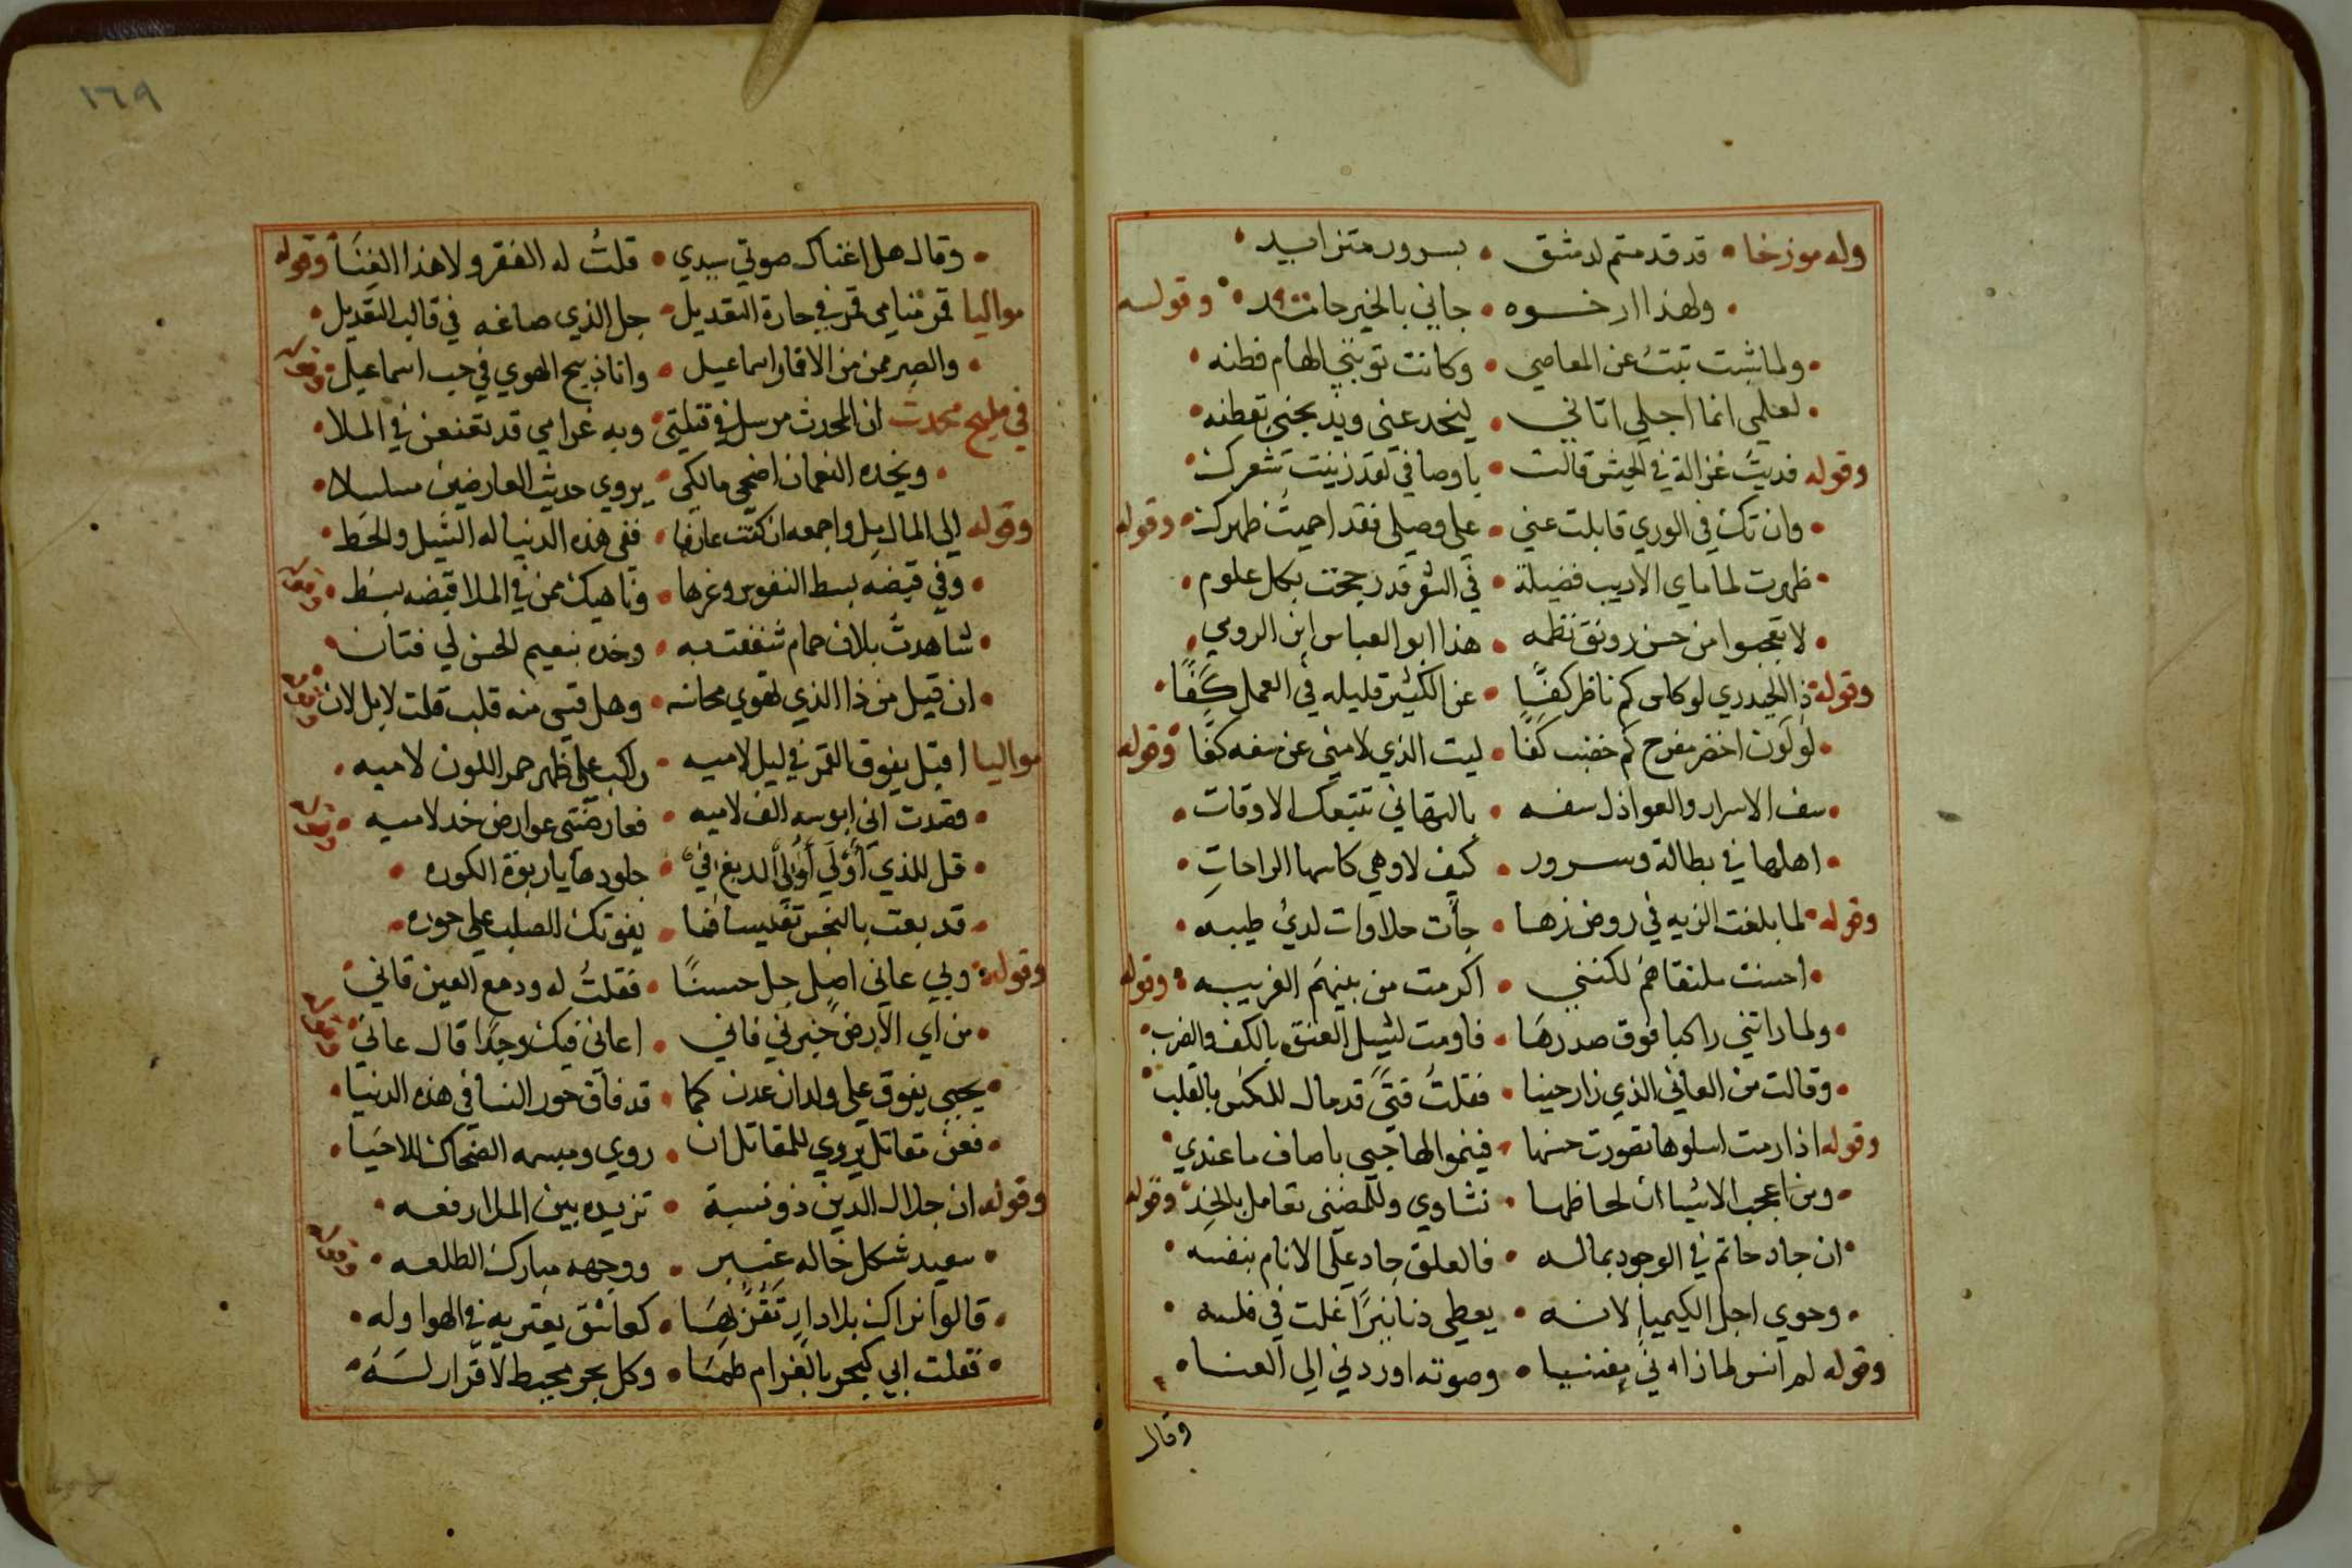 وله موزخا • قد قدمتم لدمشق • بسرور متزايد •
• ولهذا ارخوه • جاني بالخير حامد • وقوله
• ولما شبت تبتُ عن المعاصي • وكانت توبتي الهام فطنه •
• لعلمي انما اجلي اتاني • ليخدعني ويذبحني بقطنه •
وقوله فديتُ غزالة في الجيش قالت • ياوصافي لقد زينت شعرك •
• وان تك في الوري قابلت عني • علي وصلي فقد احميتُ ظهرك • وقوله
• ظهرت لماماي الاديب فضيلة • في الشعر قد رجحت بكل علوم •
• لا تعجبوا من حسن رونق نظمه • هذا ابو العباس ابن الرومي •
وقوله ذا الحيدري لو كاس كم ناظر كفّا • عن الكثير قليله في العمل كَفّا •
• لو لون اخضر مفرح كم خضب كفا • ليت الذي لامني عن سفه كفّا • وقوله
• سف الاسرار والعواذل سفه • بالتهاني تتبعك الاوقات •
• اهلها في بطالة وسرور • كيف لا وهي كاسها الراحاتِ •
وقوله • لما بلغت الزيه في روض زها • جأت حلاوات لديّ طيبه •
• احسنت ملتقاهم لكنني • اكرمت من بينهم الغريبه • وقوله
• ولما راتني راكبا فوق صدرها • فاومت لشيل العنق بالكف والضرب •
• وقالت من العاني الذي زار حينا • فقلتُ فتىً قد مال للكس بالقلب •
وقوله اذا رمت اسلوها تصورت حسنها • فينمو الها جبي باصاف ما عندي •
• ومن اعجب الاشيا ان لحاظها • نشاوي وللمضني تعامل بالخد • وقوله
• ان جاد حاتم في الوجود بماله • فالعلق جاد علي الانام بنفسه •
• وحوي اجل الكيميا لانه • يعطي دنانيرًا غلت في فلسه •
وقوله لم انس لما زاره في مغنيا • وصوته اوردني الي العنا •
وقال
١٦٩
• وقال هل اغناك صوتي سيدي • قلتُ له الفقر ولا هذا الغِنَا • وقوله
مواليا قمر منامي قمر في حارة القنديل • جل الذي صاغه في قالب القنديل •
• والصبر ممن من الاقمار اسماعيل • وانا ذبيح الهوي في حب اسماعيل • وقوله
في مليح محدث ان المحدث مرسل في قتلتي • وبه غرامي قد تعنعن في الملا •
• وبخده النعمان اضحي مالكي • يروي حديث العارضين مسلسلا •
وقوله الي المال مِل واجمعه ان كنت عارفا • ففي هذه الدنيا له الشيل والحَط •
• وفي قبضه بسط النفوس وغرها • وناهيك ممن في الملا قبضه بسَط • وقوله
• شاهدتُ بلان حمام شغفت به • وخده بنعيم الحسن لي فتان •
• ان قيل من ذا الذي تهوي محاسنه • وهل قسي منه قلب قلت لا بل لان • وقوله
مواليا اقبل يفوق القمر في ليل لاميه • راكب علي ظهر حمر اللون لاميه •
• وقصدت اني ابوسه الف لاميه • فعارضتني عوارض خد لاميه • وقوله
• قل للذي أوْلَي أوْلَي الدبغ في • جلودها يا ربوة الكوره •
• قد بعت بالنجس تفليسا فما • يفوتك الصلب علي حوره •
وقوله • ولي عاني اصل جل حسنًا • فقلتُ له ودمع العين قاني •
• من اي الارض خبرني فاني • اعاني فيك وجدًا قال عاني • وقوله
• يحيي يفوق علي ولدان عدن كما • قد فاق حور النسا في هذه الدنيا •
• فعن مقاتل يروي للمقاتل ان • روي ومبسمه الضحاك للاحيا •
وقوله ان جلال الدين ذو نسبة • تزيده بين الملا رفعه •
• سعيد شكل خاله عنبر • ووجهه مبارك الطلعه • وقوله
• قالوا نراك بلا دارٍ تَقَرّ بها • كعاشق يعتريه في الهوا وله •
• فقلت اني كبحر بالغرام طما • وكل بحر محيط لا قرار لَه •